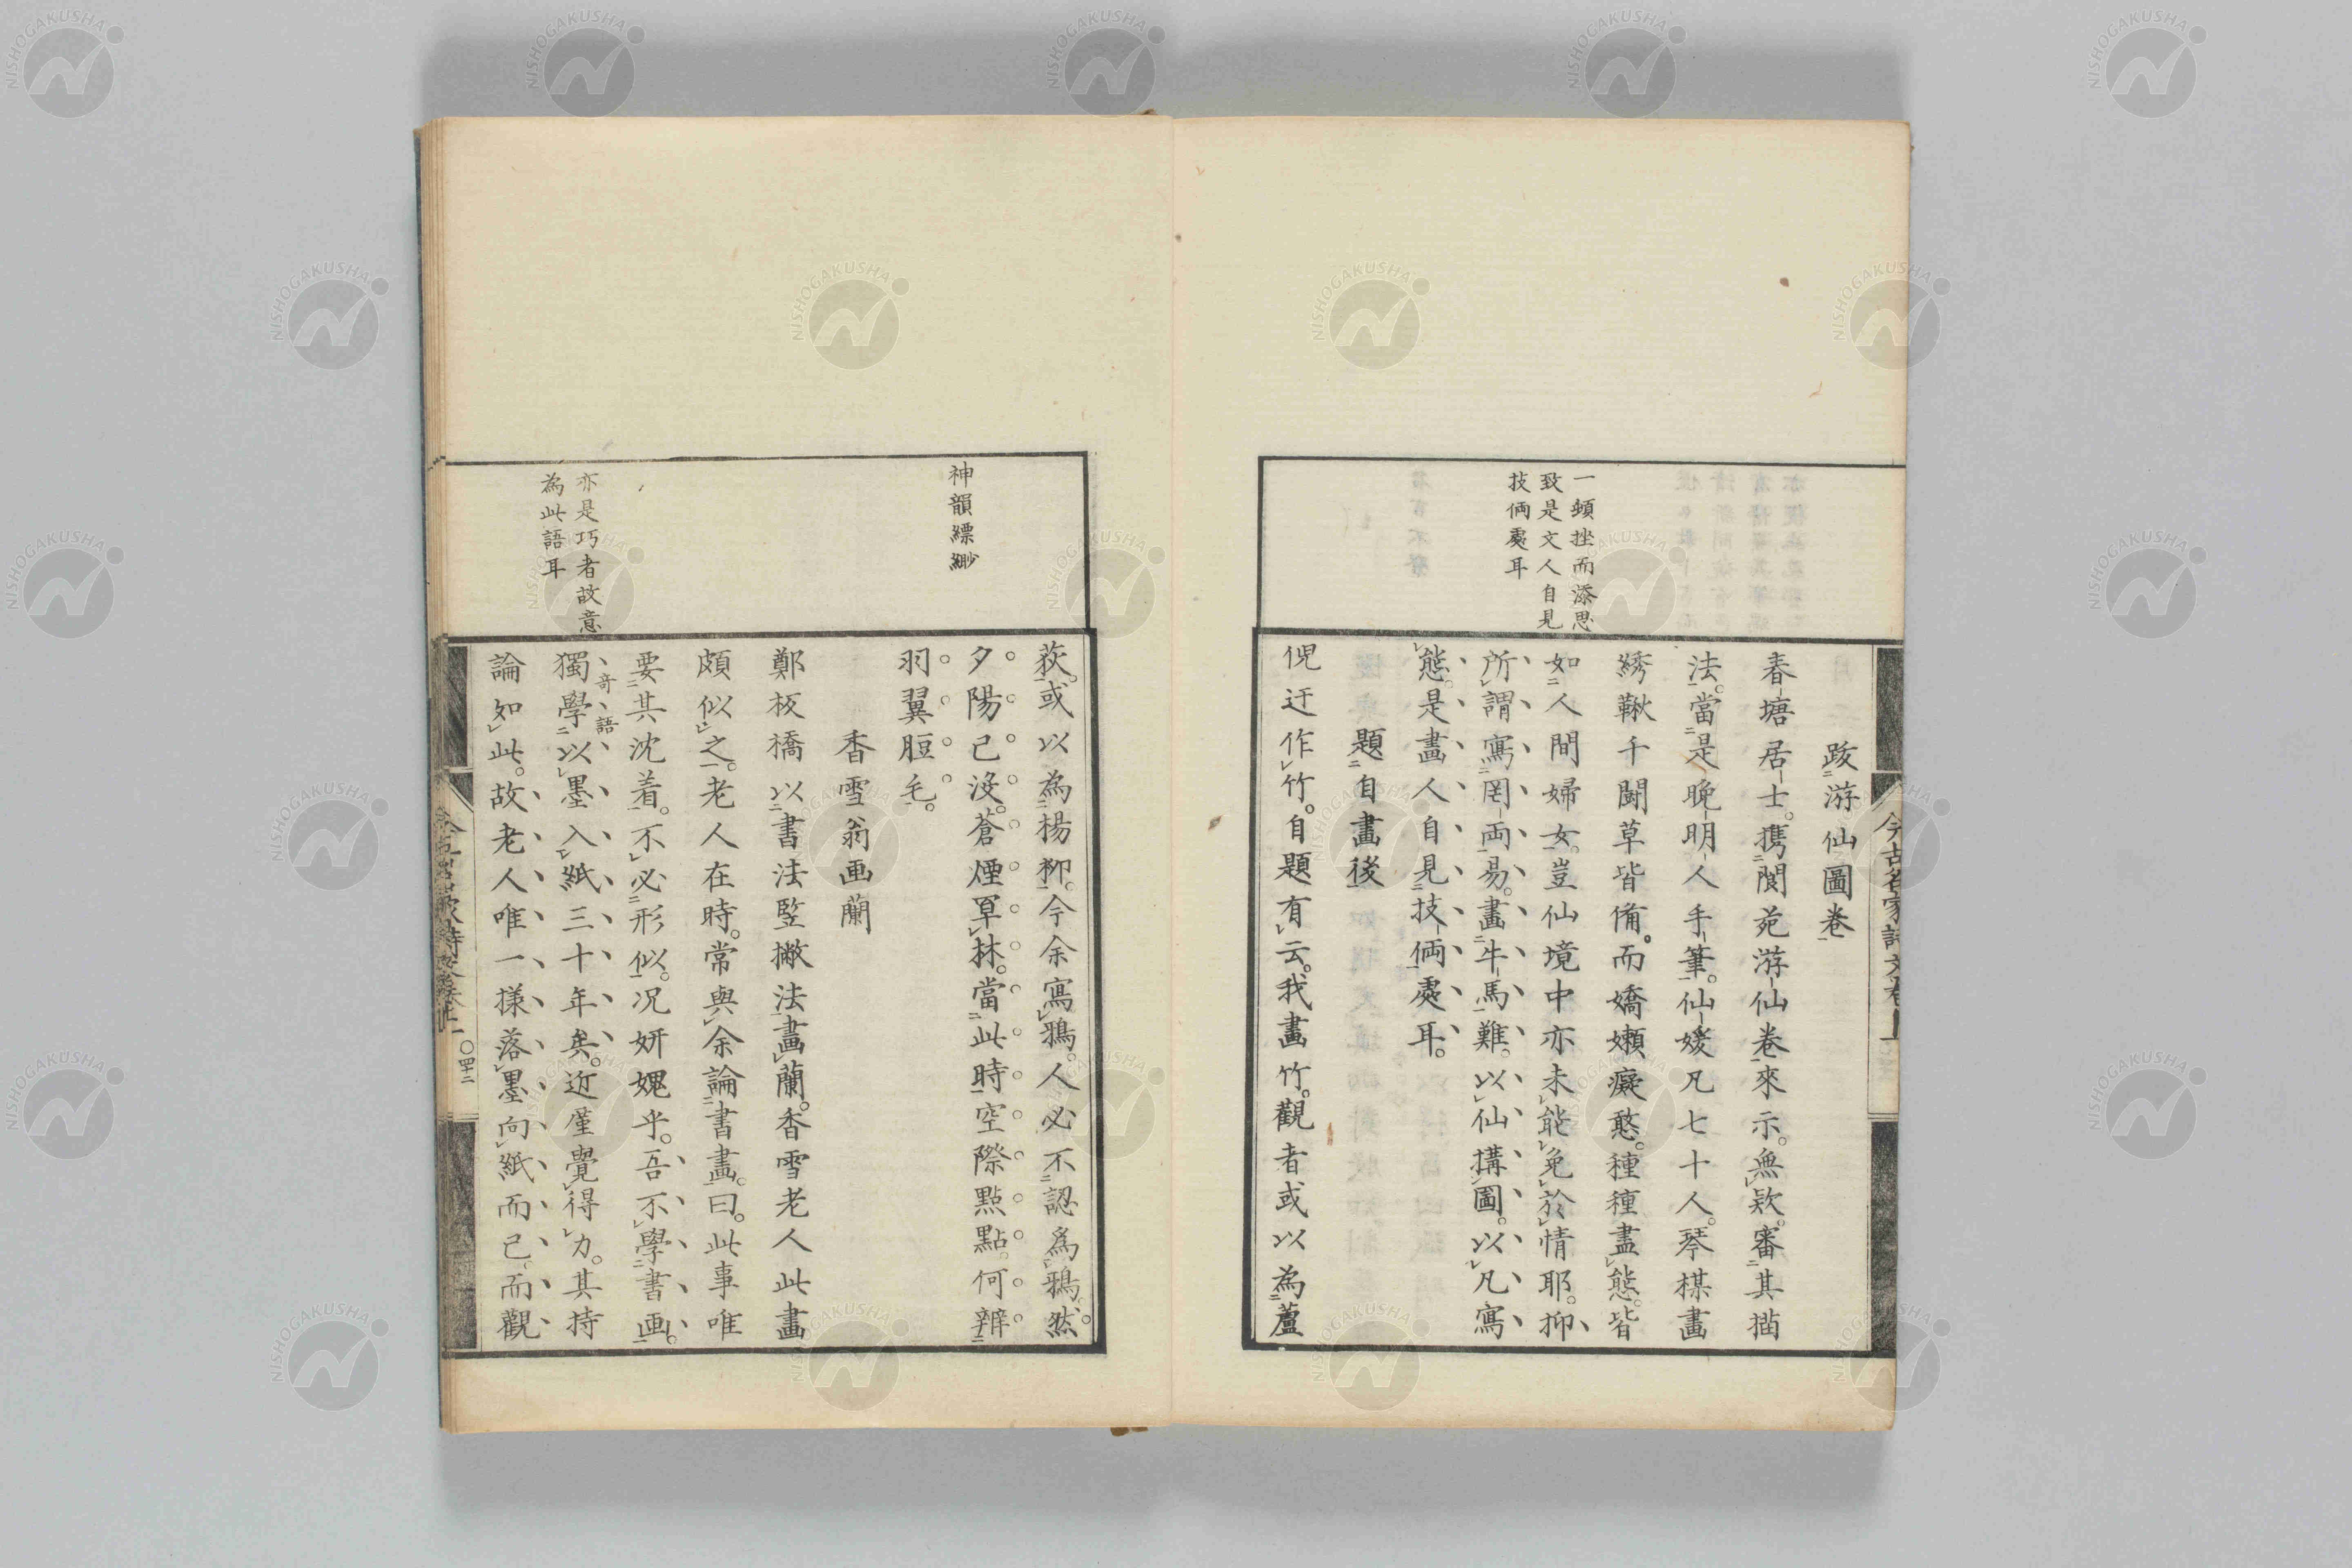 一頓挫而添思
致是文人自見
技倆處耳
跋游仙圖卷
春塘居士。携閬苑游仙卷來示。無欵。審其描
法。當是晚明人手筆。仙媛凡七十人。琴棋畫
綉鞦千鬪草皆備。而嬌嬾癡憨。種種盡態。皆
如人間婦女。豈仙境中亦未能免於情耶。抑
所謂寫罔両易。畫牛馬難。以仙搆圖。以凡寫
態。是畫人自見技倆處耳。
題自畫後
倪迂作竹。自題有云。我畫竹。觀者或以為蘆
神韻縹緲
亦是巧者故意
為此語耳
荻。或以為楊柳。今余寫鴉。人必不認為鴉。然
夕陽已沒。蒼煙罩林。當此時。空際點點。何辨
羽翼脰毛。
香雪翁画蘭
鄭板橋以書法竪撇法畫蘭。香雪老人此畫
頗似之。老人在時。常與余論書畫。曰。此事唯
要其沈着。不必形似。况妍媿乎。吾不學書画。
獨學以墨入紙三十年矣。近厪覺得力。其持
奇語
論如此。故老人唯一様落墨向紙而已。而觀
四十二
NISHOGAKUSHA